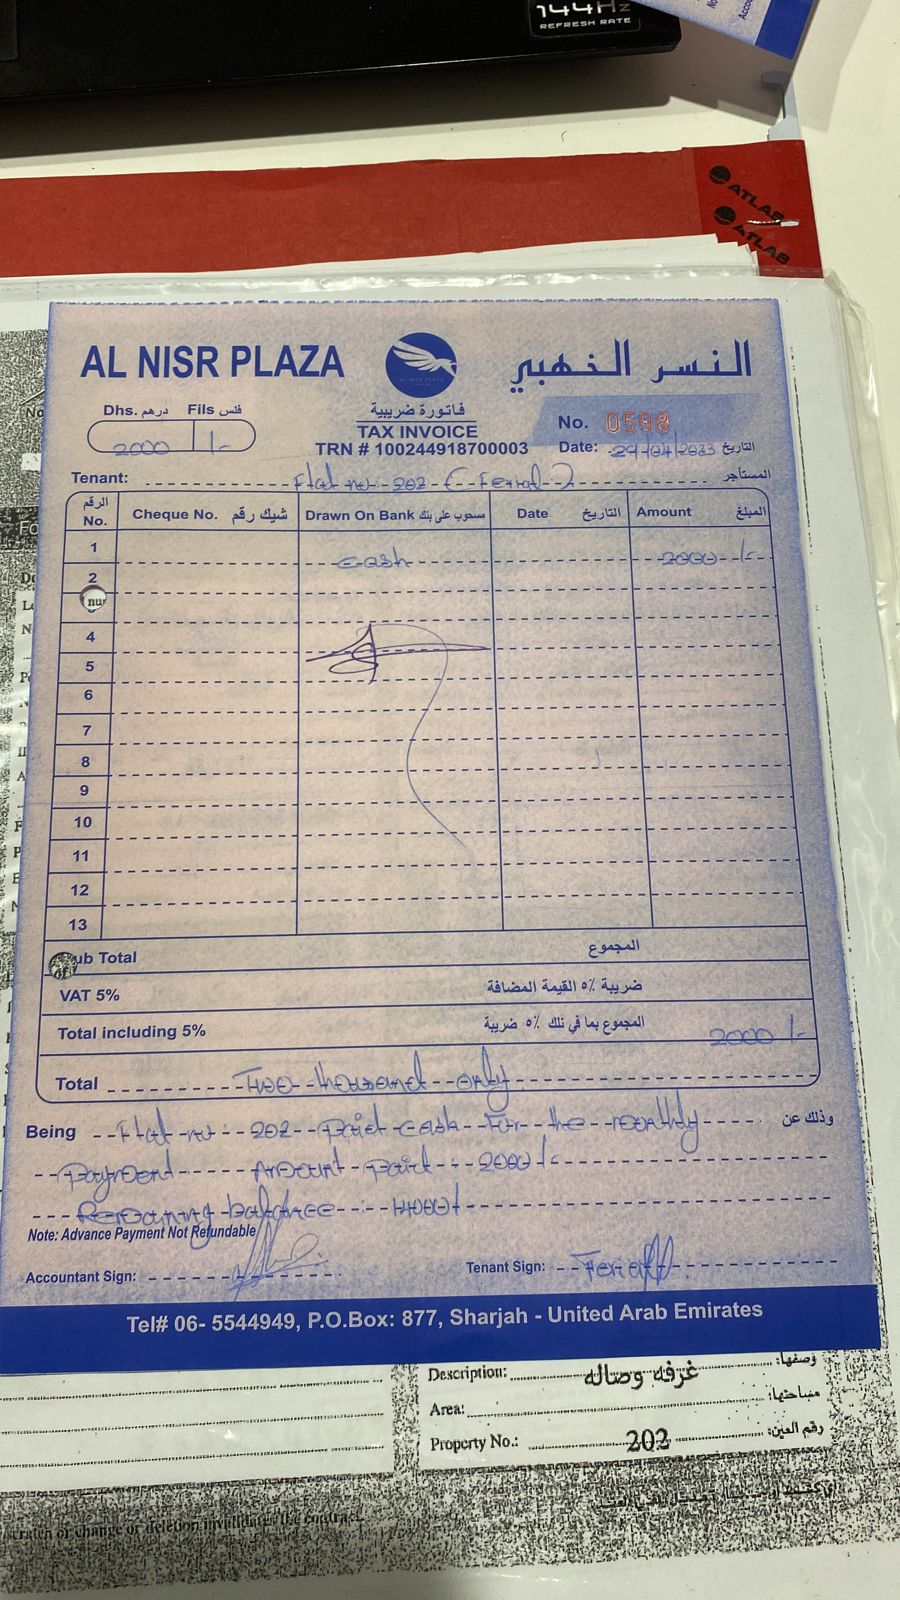 144Hz
REFRESH RATE
ATLAS
ATLAS
AL NISR PLAZA
النسر الذهبي
Dhs. درهم Fils فلس
2000 /-
فاتورة ضريبية
TAX INVOICE
TRN # 100244918700003
No. 0598
Date: 29/04/2023 التاريخ
Tenant: Flat no 202 المستأجر
الرقم No. Cheque No. شيك رقم Drawn On Bank مسحوب على بنك Date التاريخ Amount المبلغ
1 Cash 2000 /-
2
4
5
6
7
8
9
10
11
12
13
ub Total المجموع
VAT 5% ضريبة ٥٪ القيمة المضافة
Total including 5% المجموع بما في ذلك ٥٪ ضريبة 2000 /-
Total Two thousand only
Being Flat no 202 Paid cash For the monthly وذلك عن
Payment Amount Paid 2000 /-
Remaining balance
Note: Advance Payment Not Refundable
Accountant Sign:
Tenant Sign:
Tel# 06- 5544949, P.O.Box: 877, Sharjah - United Arab Emirates
Description: غرفه وصاله وصفها:
Area: مساحتها:
Property No.: 202 رقم العين:
or change or deletion invalidates the contract